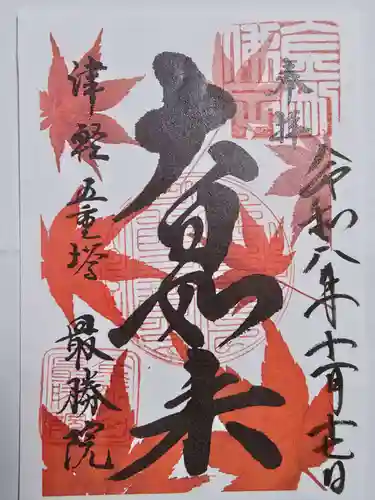 奉拝
令和八年十一月十七日
大日如来
津軽五重塔
最勝院